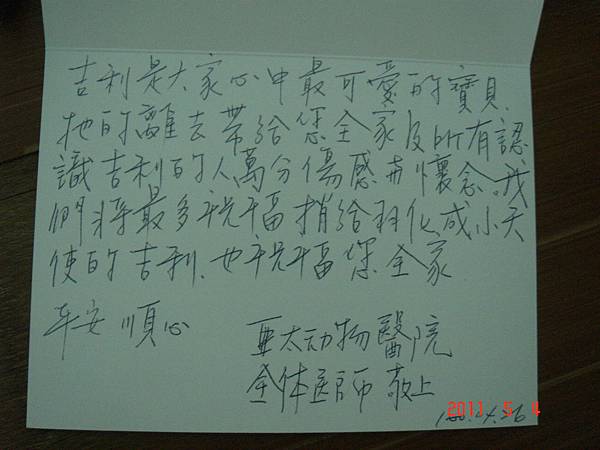 吉利是大家心中最可愛的寶貝、
牠的離去帶給您全家及所有認
識吉利的人萬分傷感與懷念。我
們將最多祝福捎給羽化成小天
使的吉利、也祝福您全家
平安 順心
亞太动物醫院
全体医师 敬上
100.4.26
2011. 5. 4